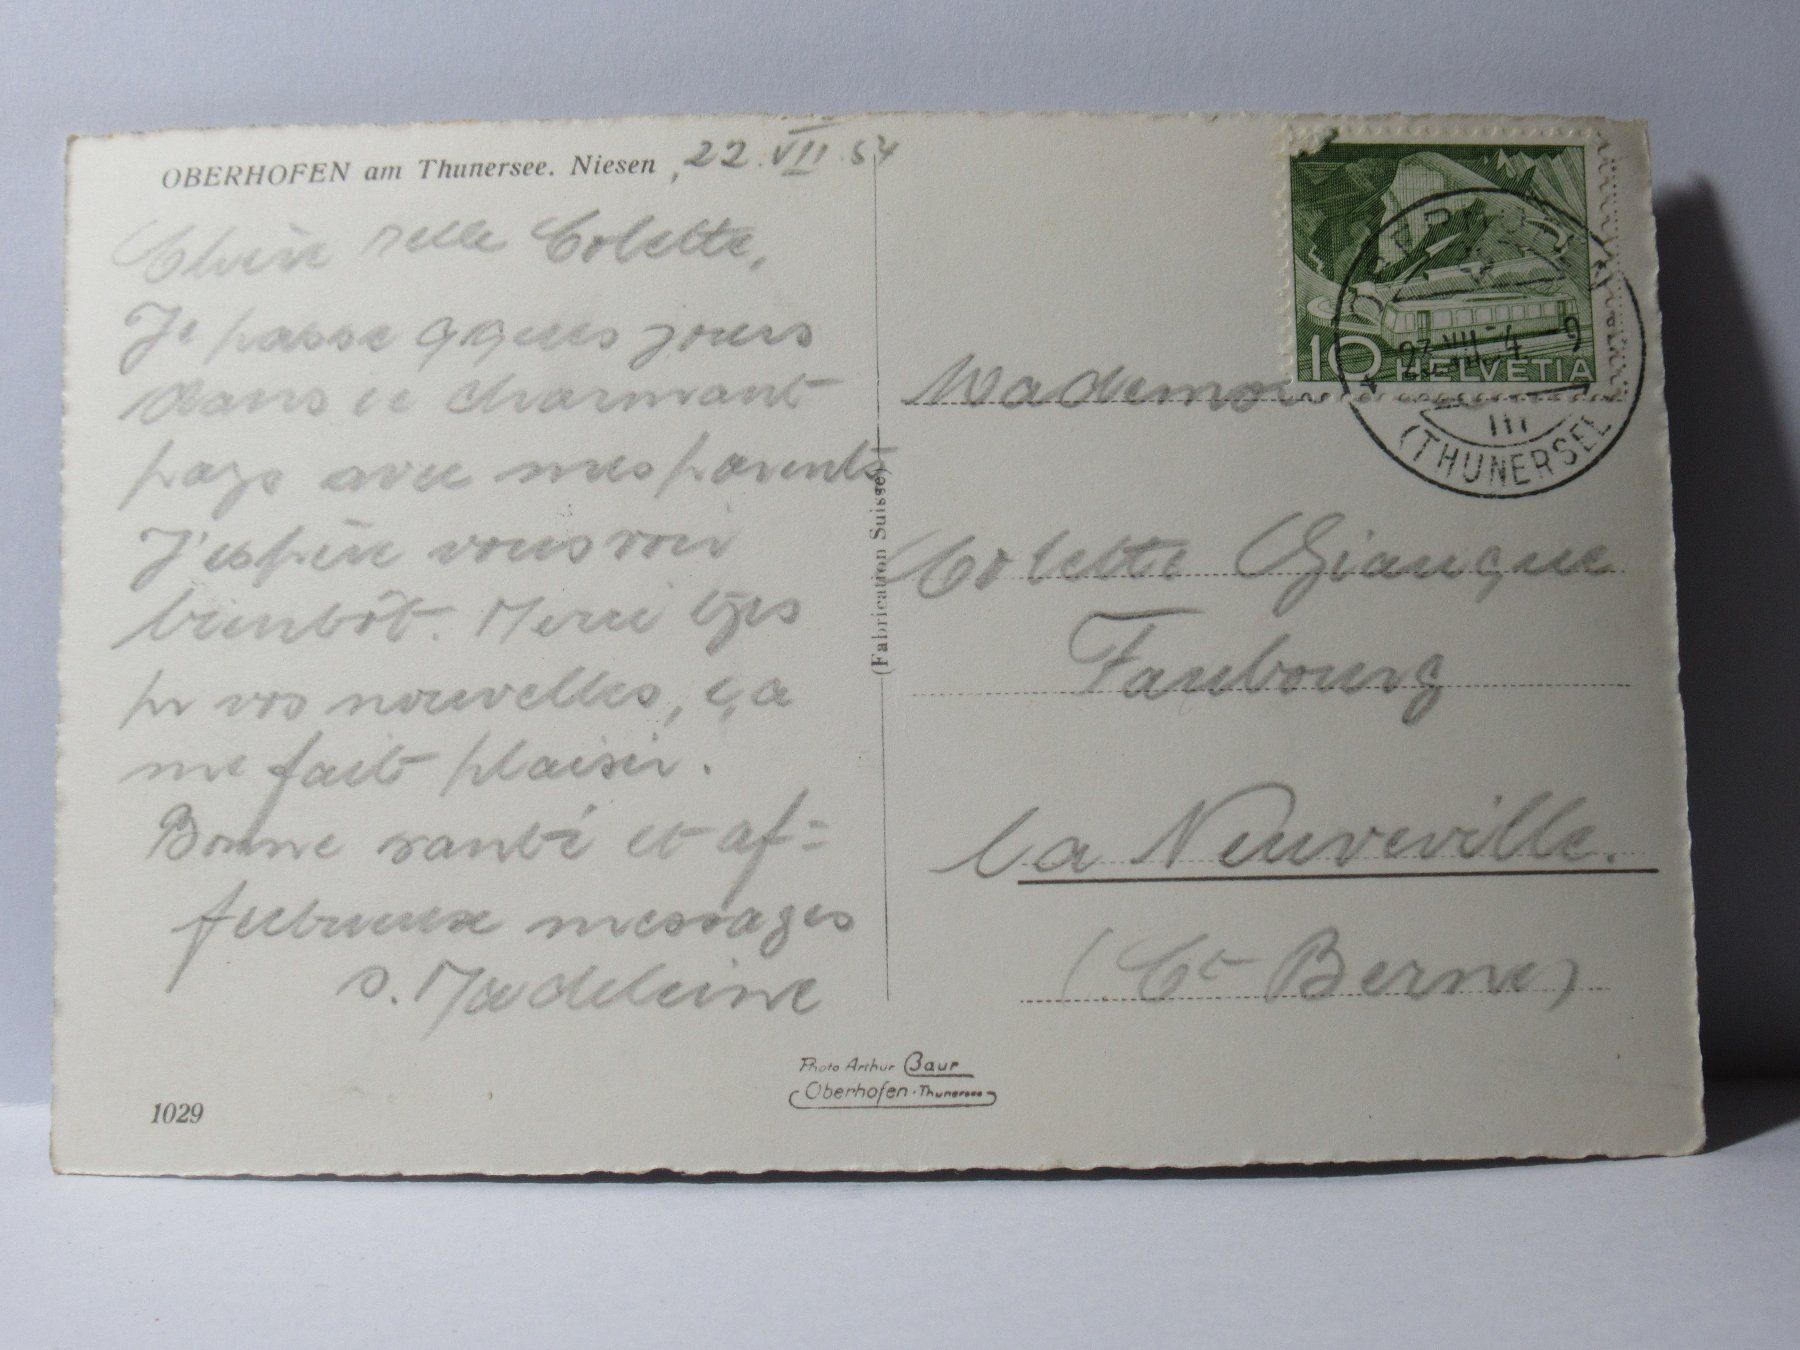 OBERHOFEN am Thunersee. Niesen, 22.VII.54
Chère Melle Colette,
Je passe qques jours
dans ce charmant
pays avec mes parents
J'espère vous voir
bientôt. Merci
pr vos nouvelles, ça
me fait plaisir.
Bonne santé et af=
fectueux messages
s. Madeleine
1029
(Fabrication Suisse)
Photo Arthur Baur
Oberhofen-Thunersee
10 HELVETIA
23.VII.54.-9
III
(THUNERSEE
Mademoi
Colette Giauque
Faubourg
La Neuveville.
(Ct Berne)